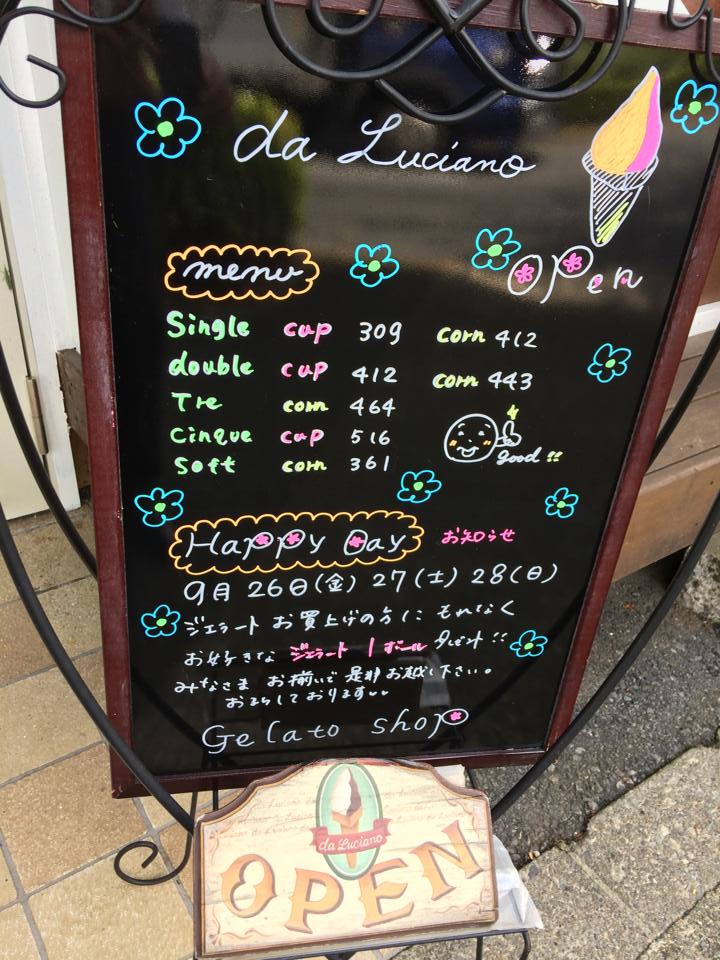 da Luciano
menu
open
Single cup 309 corn 412
double cup 412 corn 443
Tre corn 464
Cinque cup 516
Soft corn 361
good!!
Happy Day お知らせ
9月26日(金) 27(土) 28(日)
ジェラート お買上げの方に もれなく
お好きな ジェラート 1ボール プレゼント!!
みなさま お揃いで 是非お越し下さい。
おまちしております
Gelato shop
da Luciano
OPEN